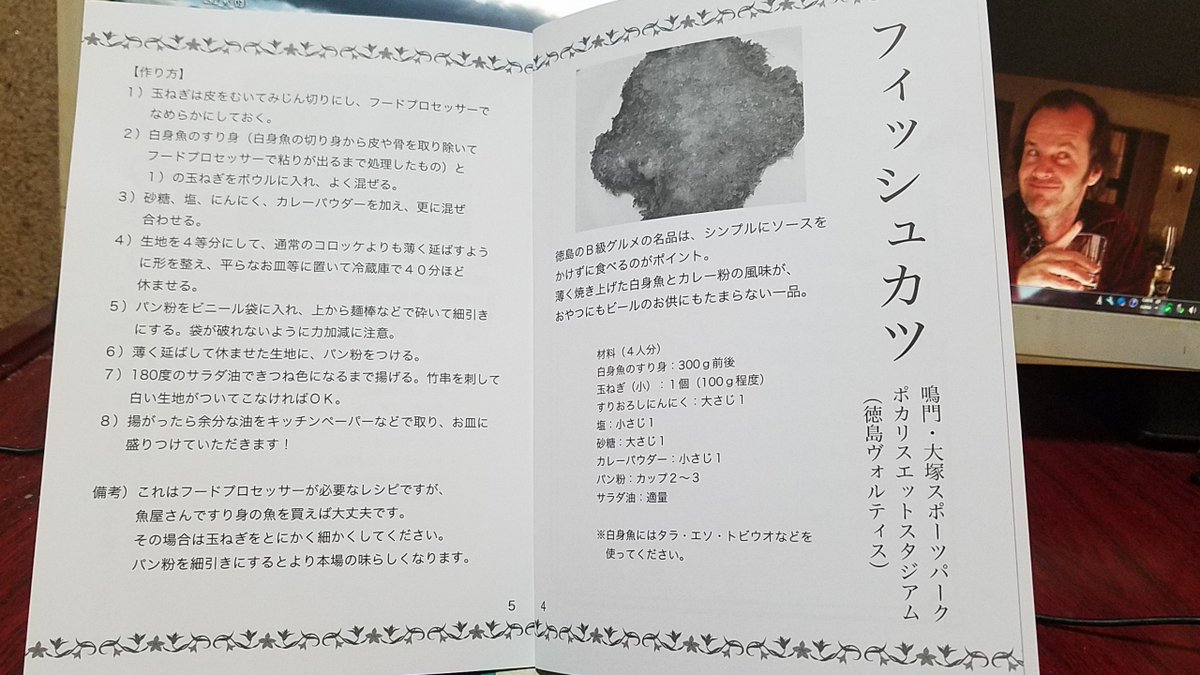 フィッシュカツ
鳴門・大塚スポーツパーク
ポカリスエットスタジアム
（徳島ヴォルティス）
徳島のＢ級グルメの名品は、シンプルにソースを
かけずに食べるのがポイント。
薄く焼き上げた白身魚とカレー粉の風味が、
おやつにもビールのお供にもたまらない一品。
材料（４人分）
白身魚のすり身：300ｇ前後
玉ねぎ（小）：１個（100ｇ程度）
すりおろしにんにく：大さじ１
塩：小さじ１
砂糖：大さじ１
カレーパウダー：小さじ１
パン粉：カップ２～３
サラダ油：適量
※白身魚にはタラ・エソ・トビウオなどを
使ってください。
4
【作り方】
１）玉ねぎは皮をむいてみじん切りにし、フードプロセッサーで
なめらかにしておく。
２）白身魚のすり身（白身魚の切り身から皮や骨を取り除いて
フードプロセッサーで粘りが出るまで処理したもの）と
１）の玉ねぎをボウルに入れ、よく混ぜる。
３）砂糖、塩、にんにく、カレーパウダーを加え、更に混ぜ
合わせる。
４）生地を４等分にして、通常のコロッケよりも薄く延ばすよう
に形を整え、平らなお皿等に置いて冷蔵庫で４０分ほど
休ませる。
５）パン粉をビニール袋に入れ、上から麺棒などで砕いて細引き
にする。袋が破れないように力加減に注意。
６）薄く延ばして休ませた生地に、パン粉をつける。
７）180度のサラダ油できつね色になるまで揚げる。竹串を刺して
白い生地がついてこなければＯＫ。
８）揚がったら余分な油をキッチンペーパーなどで取り、お皿に
盛りつけていただきます！
備考）これはフードプロセッサーが必要なレシピですが、
魚屋さんですり身の魚を買えば大丈夫です。
その場合は玉ねぎをとにかく細かくしてください。
パン粉を細引きにするとより本場の味らしくなります。
5